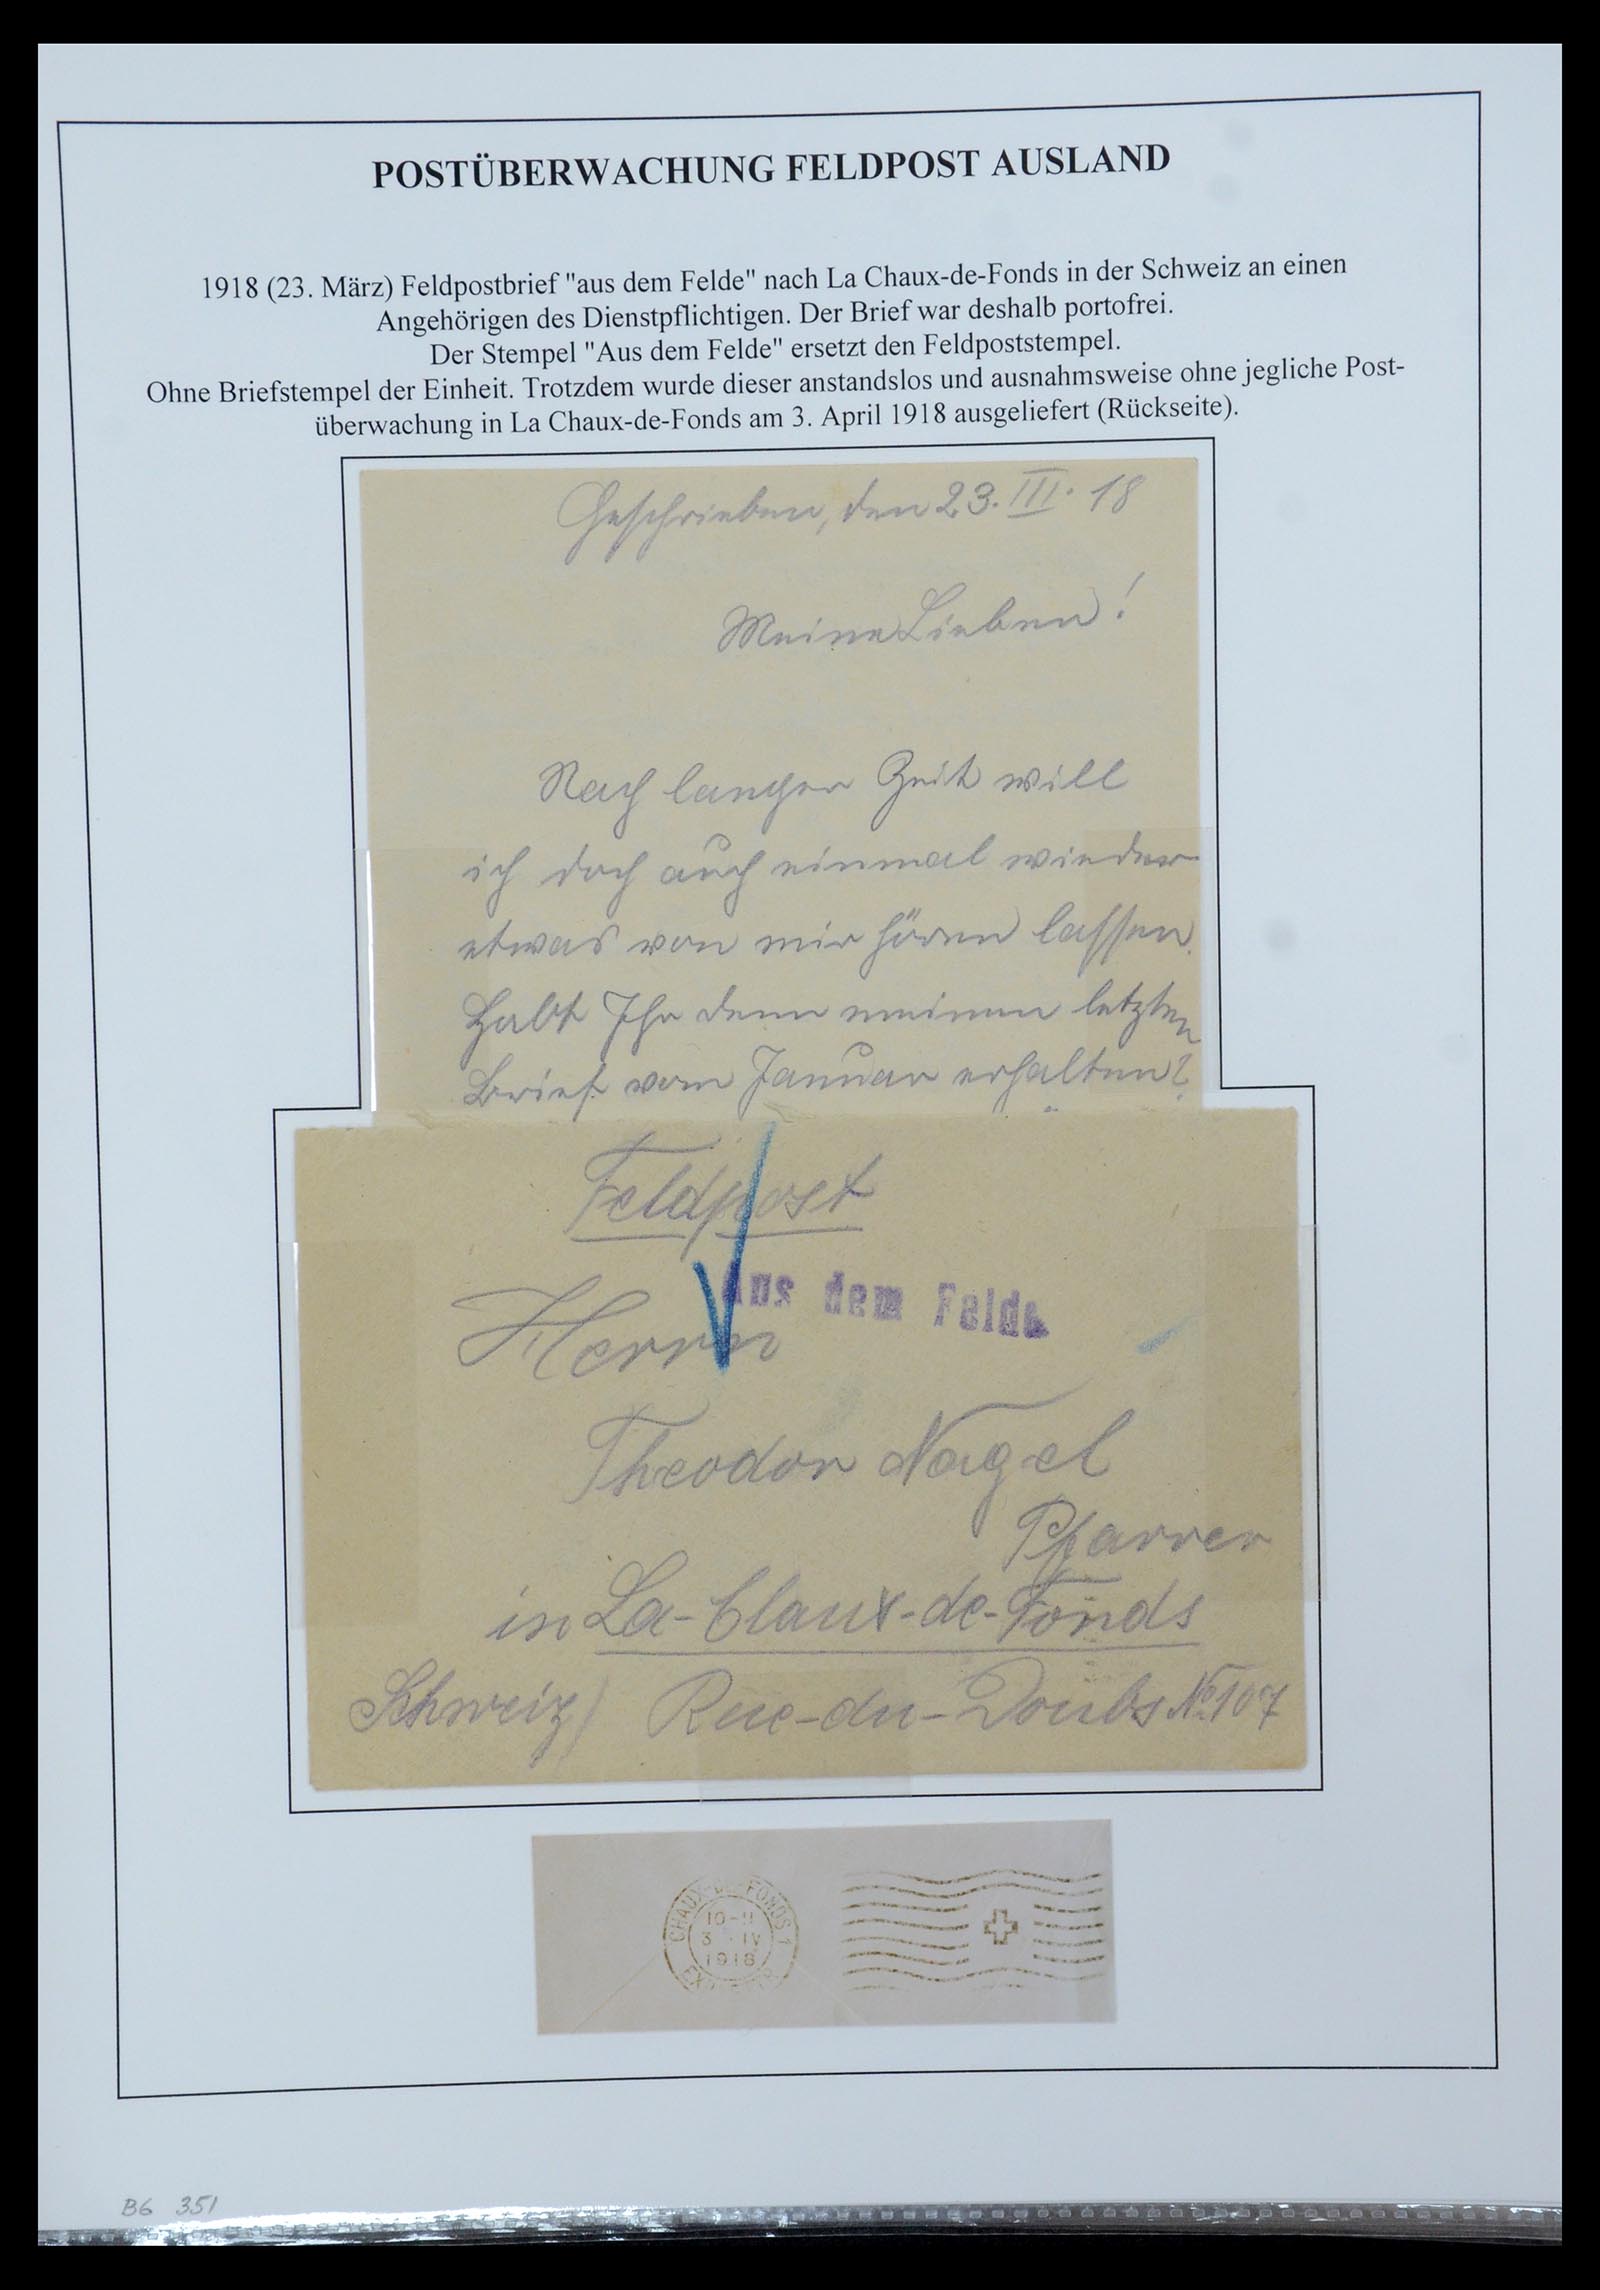 POSTÜBERWACHUNG FELDPOST AUSLAND
1918 (23. März) Feldpostbrief "aus dem Felde" nach La Chaux-de-Fonds in der Schweiz an einen
Angehörigen des Dienstpflichtigen. Der Brief war deshalb portofrei.
Der Stempel "Aus dem Felde" ersetzt den Feldpoststempel.
Ohne Briefstempel der Einheit. Trotzdem wurde dieser anstandslos und ausnahmsweise ohne jegliche Post-
überwachung in La Chaux-de-Fonds am 3. April 1918 ausgeliefert (Rückseite).
Geschrieben, den 23. III. 18
Meine Lieben!
Nach langer Zeit will
ich doch auch einmal wieder
etwas von mir hören lassen.
Habt Ihr denn meinen letzten
Brief vom Januar erhalten?
Feldpost
Aus dem Felde
Herrn
Theodor Nagel
Pfarrer
in La-Chaux-de-Fonds
Schweiz) Rue-du-Doubs No 107
CHAUX-DE-FONDS 1
10-11
3. IV
1918
B6 351